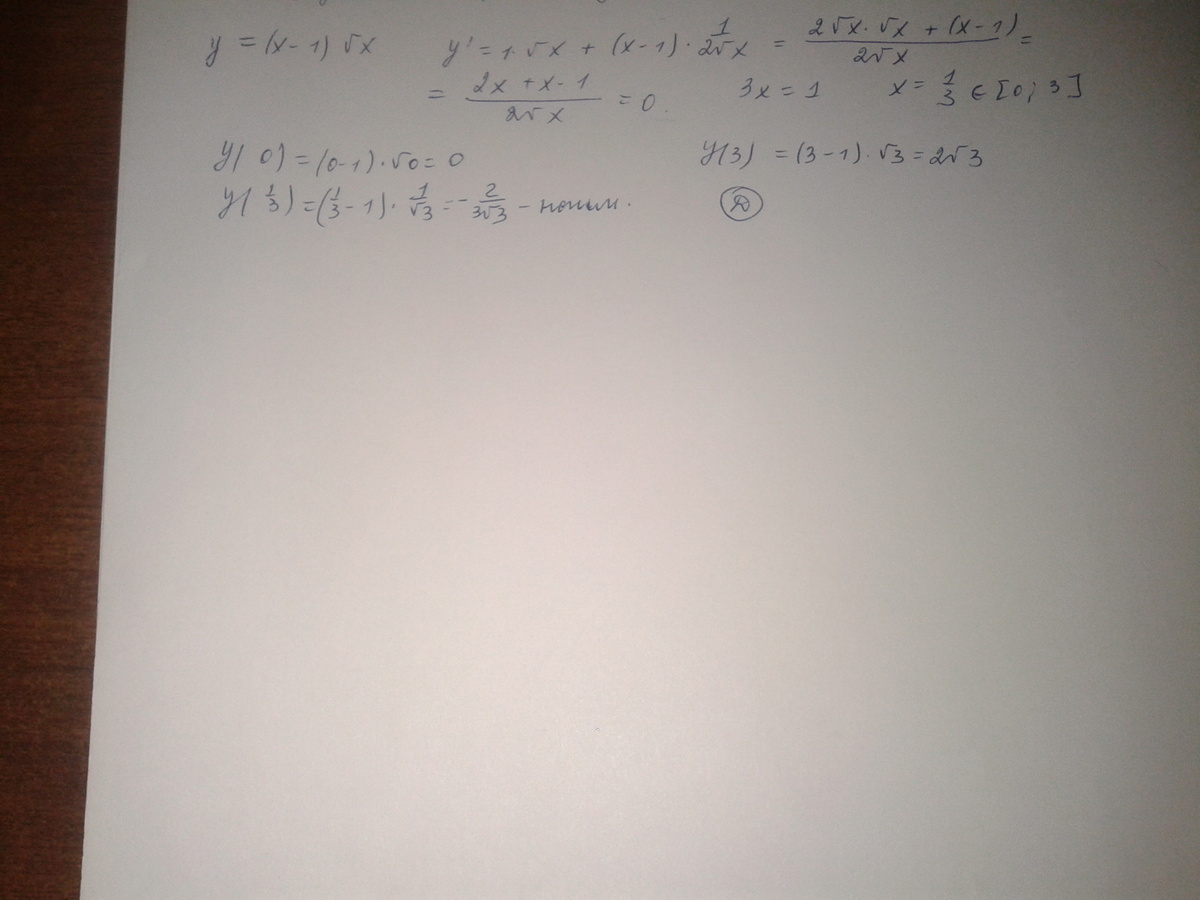 y = (x-1) √x y' = 1·√x + (x-1)· 1/(2√x) = (2√x·√x + (x-1))/(2√x) =
= (2x + x - 1)/(2√x) = 0. 3x = 1 x = 1/3 ∈ [0; 3]
y(0) = (0-1)·√0 = 0 y(3) = (3-1)·√3 = 2√3
y(1/3) = (1/3 - 1)· 1/√3 = - 2/(3√3) - наим.